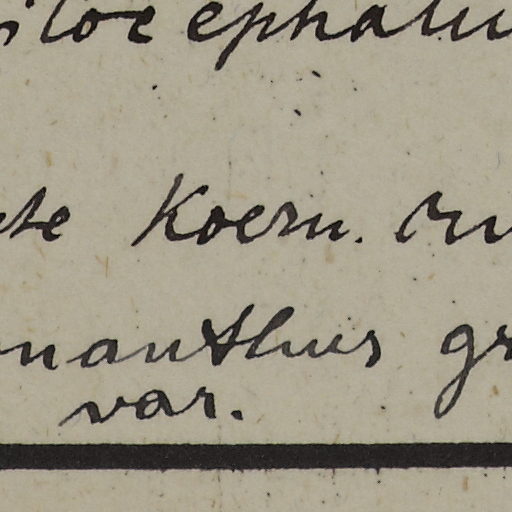 ilocephalu
te Koern. ru
nanthus gr
var.